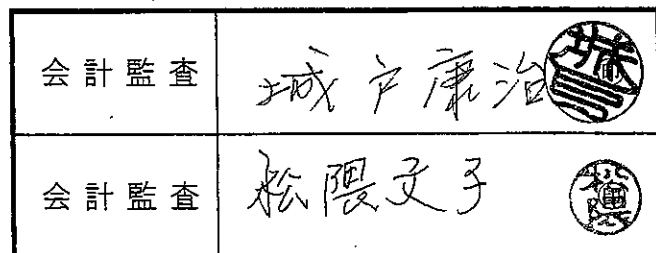 会計監査 城戸康治
会計監査 松隈文子